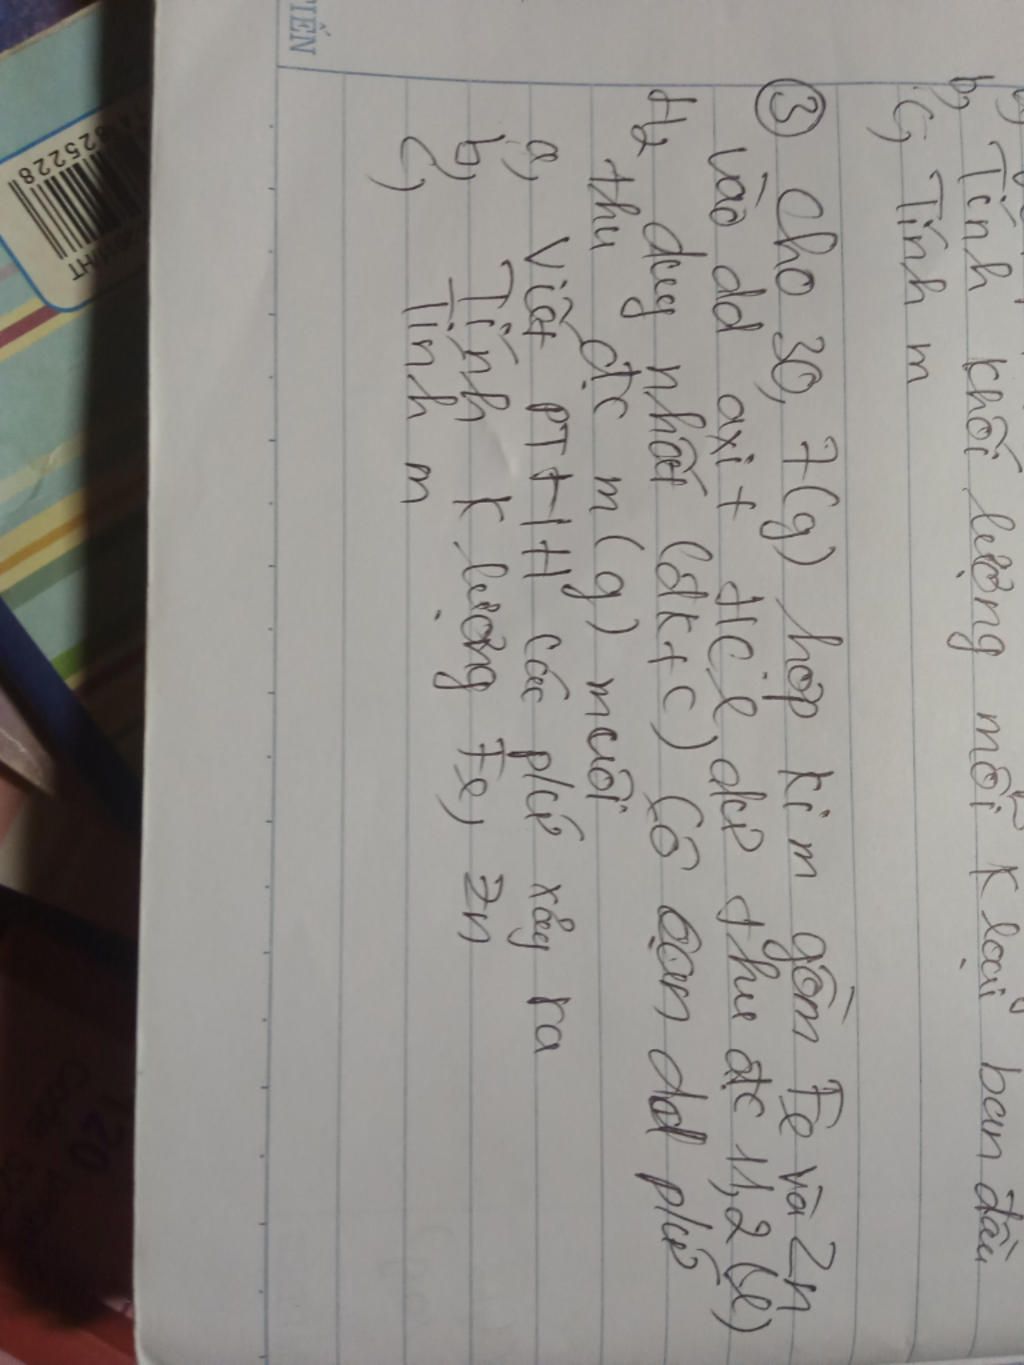 b, Tính khối lượng mỗi k loại ban đầu
c, Tính m
③ Cho 30,7(g) hợp kim gồm Fe và Zn
vào dd axit HCl dư thu đtc 11,2 (l)
H2 duy nhất (đktc) Cô cạn dd pứ
thu đtc m(g) muối
a, Viết PTHH các pứ xảy ra
b, Tính k lượng Fe, Zn
c, Tính m
TIẾN
825228
120